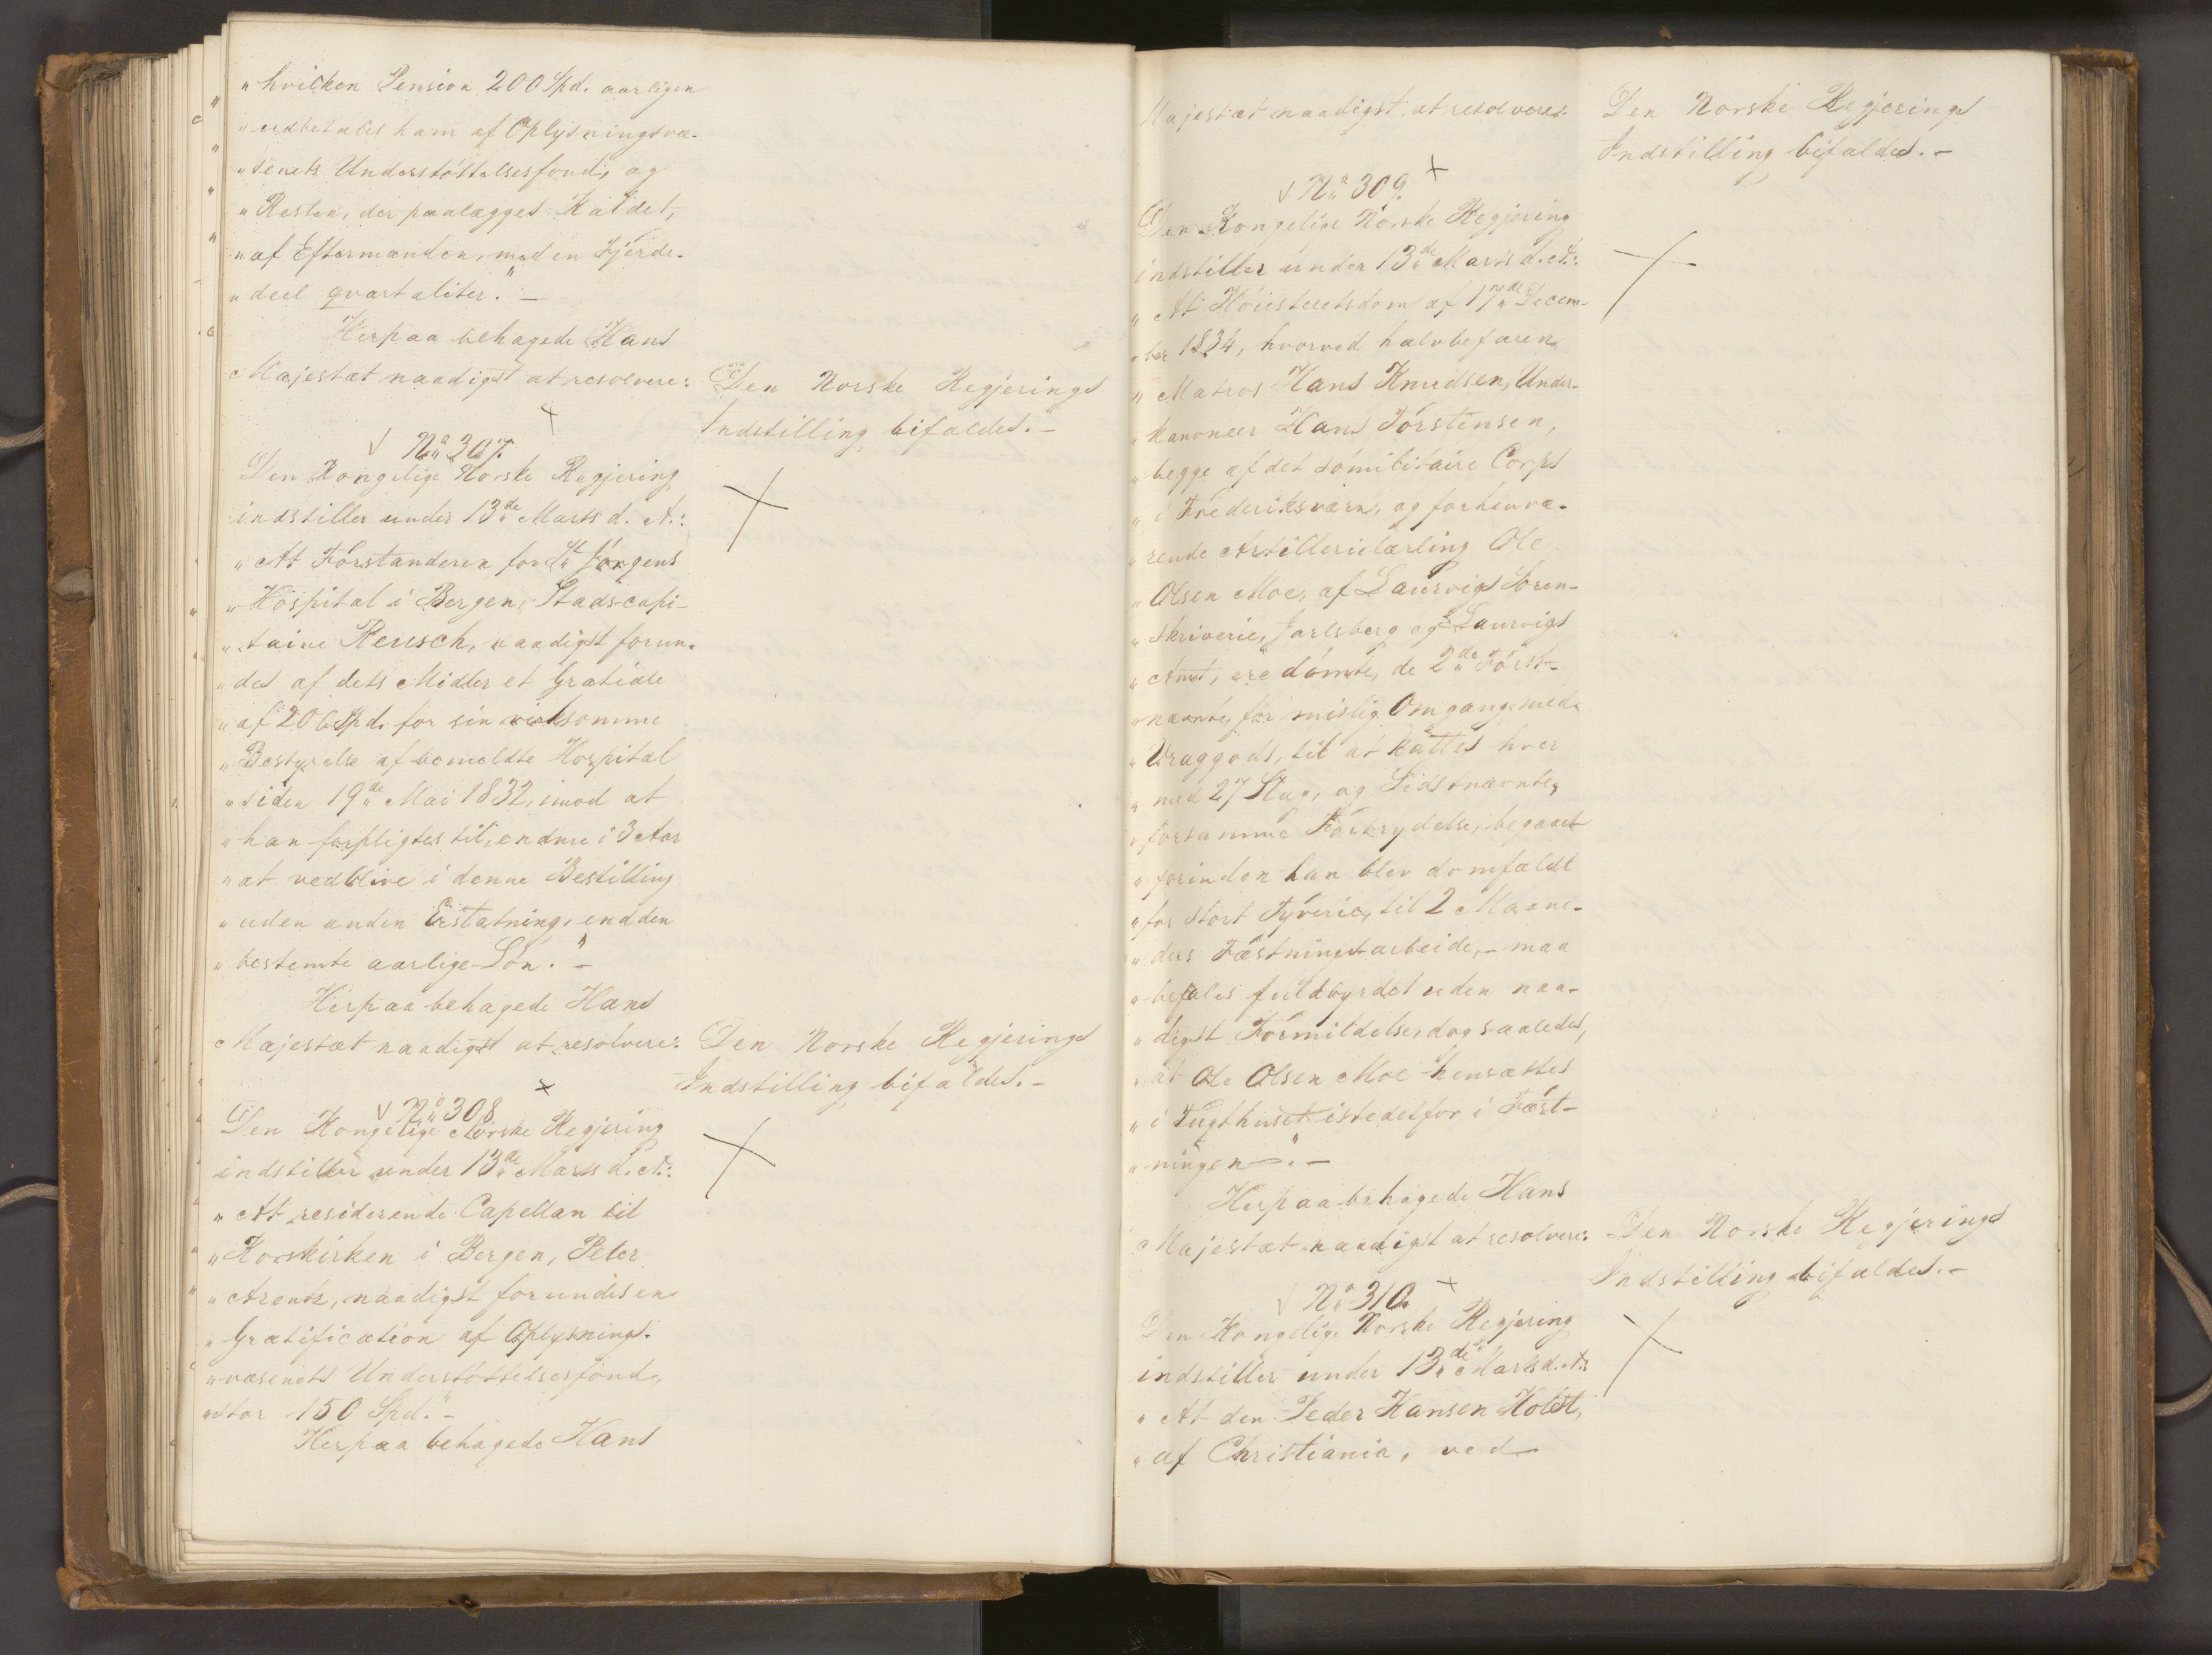 "hvilken Pension 200 Spd. aarligen
"udbetales ham af Oplysningsvæ-
"senets Understøttelsesfond, og
"Resten, der paalægges Kaldet,
"af Eftermanden, med en Fjerde-
"deel qvartaliter." —
Herpaa behagede Hans
Majestæt naadigst at resolvere:
Den Norske Regjerings
Indstilling bifaldes. —
No 307.
Den Kongelige Norske Regjering
indstiller under 13de Marts d. A.:
"At Forstanderen for St Jørgens
"Hospital i Bergen, Stadscapi-
"taine Reusch, naadigst forun-
"des af dets Midler et Gratiale
"af 200 Spd. for sin virksomme
"Bestyrelse af bemeldte Hospital
"siden 19de Mai 1832, imod at
"han forpligtes til, endnu i 3 Aar
"at vedblive i denne Bestilling
"uden anden Erstatning, end den
"bestemte aarlige Løn." —
Herpaa behagede Hans
Majestæt naadigst at resolvere:
Den Norske Regjerings
Indstilling bifaldes. —
No 308
Den Kongelige Norske Regjering
indstiller under 13de Marts d. A.:
"At residerende Capellan til
"Korskirken i Bergen, Peter
"Arentz, naadigst forundes en
"Gratification af Oplysnings-
"væsenets Understøttelsesfond,
"stor 150 Spd." —
Herpaa behagede Hans
Majestæt naadigst at resolvere:
Den Norske Regjerings
Indstilling bifaldes. —
No 309.
Den Kongelige Norske Regjering
indstiller under 13de Marts d. A.:
"At Høiesteretsdom af 17de Decem-
"ber 1834, hvorved halvbefaren
"Matros Hans Knudsen, Under-
"kanoneer Hans Torstensen,
"begge af det sømilitaire Corps
"i Frederiksværn, og forhenvæ-
"rende Artillerielærling Ole
"Olsen Moe, af Laurvigs Soren-
"skriverie, Jarlsberg og Laurvigs
"Amt, ere dømte, de 2de Først-
"nævnte, for mislig Omgang med
"Vraggods, til at kattes hver
"med 27 Slag, og Sidstnævnte,
"for samme Forbrydelse, begaaet
"forinden han blev domfældt
"for Stort Tyverie, til 2 Maane-
"ders Fæstningsarbeide, — maa
"befales fuldbyrdet uden naa-
"digst Formildelse, dog saaledes,
"at Ole Olsen Moe hensættes
"i Tugthuset istedetfor i Fæst-
"ningen." —
Herpaa behagede Hans
Majestæt naadigst at resolvere:
Den Norske Regjerings
Indstilling bifaldes. —
No 310.
Den Kongelige Norske Regjering
indstiller under 13de Marts d. A.:
"At den Peder Hansen Holst,
"af Christiania, ved